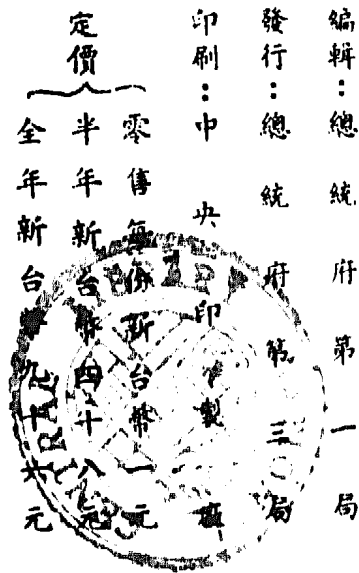 編輯：總統府第一局
發行：總統府第三局
印刷：中央印製廠
定價
零售每份新台幣一元
半年新台幣四十八元
全年新台幣九十六元